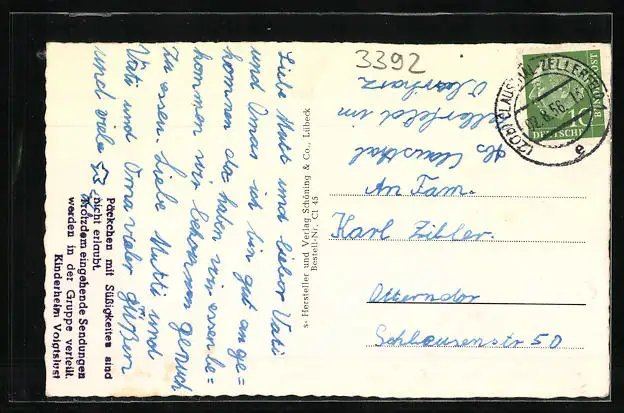 Liebe Mutti und lieber Vati
und Omas ich bin gut ange=
kommen da haben wir essen be=
kommen wir bekommen genuch
zu essen. Liebe Mutti und
Vati und Oma viele grüßen
und viele
Päckchen mit Süßigkeiten sind
nicht erlaubt.
Trotzdem eingehende Sendungen
werden in der Gruppe verteilt.
Kinderheim Voigtslust
s- Hersteller und Verlag Schöning & Co., Lübeck
Bestell-Nr. Cl 45
3392
Abs. Clausthal
Zellerfeld im
Oberharz
(20b) CLAUSTHAL-ZELLERFELD
.8.56
e
DEUTSCHE
BUNDESPOST
10
An Fam.
Karl Zibler.
Otterndor
Schleusenstr 50